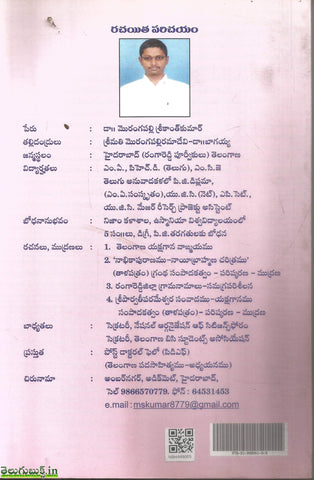 రచయిత పరిచయం
పేరు : డా॥ మొరంగపల్లి శ్రీకాంత్‌కుమార్
తల్లిదండ్రులు : శ్రీమతి మొరంగపల్లిరమాదేవి-డా॥బాగయ్య
జన్మస్థలం : హైదరాబాద్ (రంగారెడ్డి పూర్వీకులు) తెలంగాణ
విద్యార్హతలు : ఎం.ఏ., పిహెచ్.డి. (తెలుగు), ఎం.సి.జె
తెలుగు అనువాదకళలో పి.జి.డిప్లమా,
(ఎం.ఏ.సంస్కృతం),యు.జి.సి. (నెట్), ఎపి.సెట్.,
యు.జి.సి. మేజర్ రీసెర్చ్ ప్రాజెక్టు అసిస్టెంట్
బోధనానుభవం : నిజాం కళాశాల, ఉస్మానియా విశ్వవిద్యాలయంలో
5 సం॥లు, డిగ్రీ, పి.జి.తరగతులకు బోధన
రచనలు, ముద్రణలు : 1. తెలంగాణ యక్షగాన వాఙ్మయము
2. 'నాభికాపురాణము-నాయీబ్రాహ్మణ చరిత్రము'
(తాళపత్రం) గ్రంథ సంపాదకత్వం - పరిష్కరణ - ముద్రణ
3. రంగారెడ్డిజిల్లా గ్రామనామాలు-సమగ్రపరిశీలన
4. శ్రీపార్వతీపరమేశ్వర సంవాదము-యక్షగానము
సంపాదకత్వం (తాళపత్రం) - పరిష్కరణ - ముద్రణ)
బాధ్యతలు : సెక్రటరీ, నేషనల్ ఆర్గనైజేషన్ ఆఫ్ సిటిజన్స్‌ఫోరం
సెక్రటరీ, తెలంగాణ బిసి స్టూడెంట్స్ అసోసియేషన్
ప్రస్తుత : పోస్ట్ డాక్టరల్ ఫెలో (పిడిఎఫ్)
(తెలంగాణ పదసాహిత్యము-అధ్యయనము)
చిరునామా : అంబర్‌నగర్, అడిక్‌మెట్, హైదరాబాద్,
సెల్ 9866570779. ఫోన్ : 64531453
e.mail : mskumar8779@gmail.com
తెలుగుబుక్స్.in